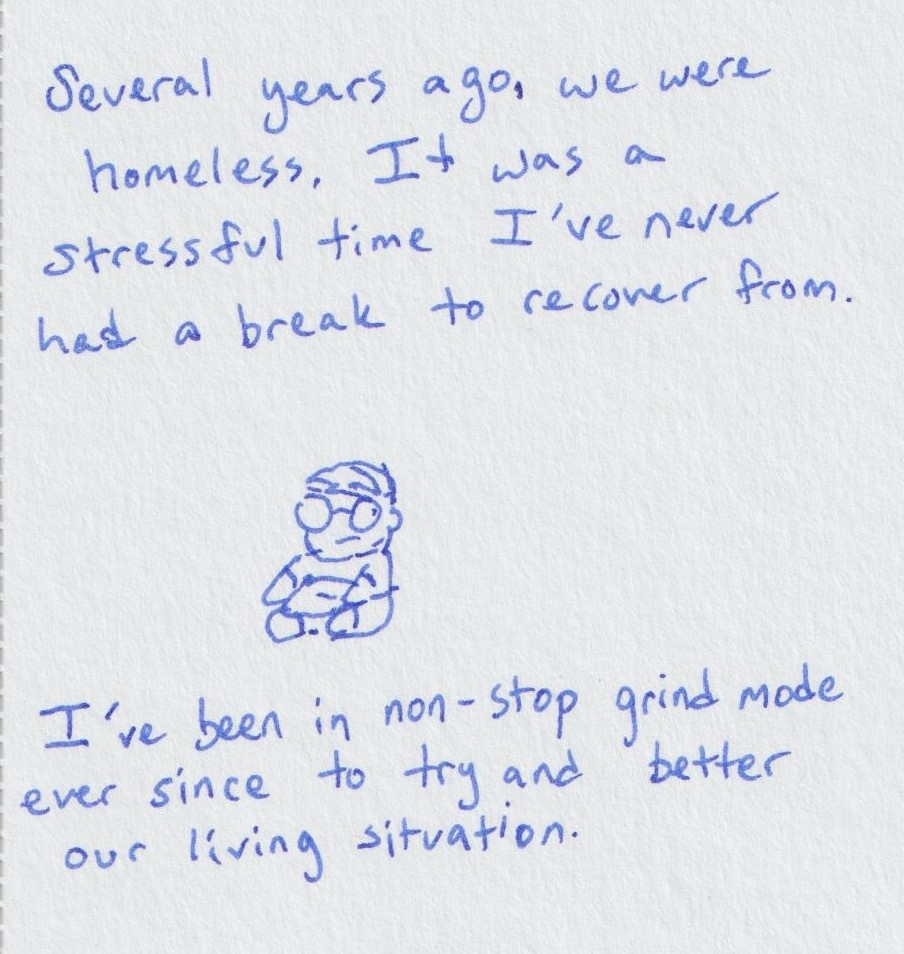 Several years ago, we were
homeless. It was a
stressful time I've never
had a break to recover from.
I've been in non-stop grind mode
ever since to try and better
our living situation.